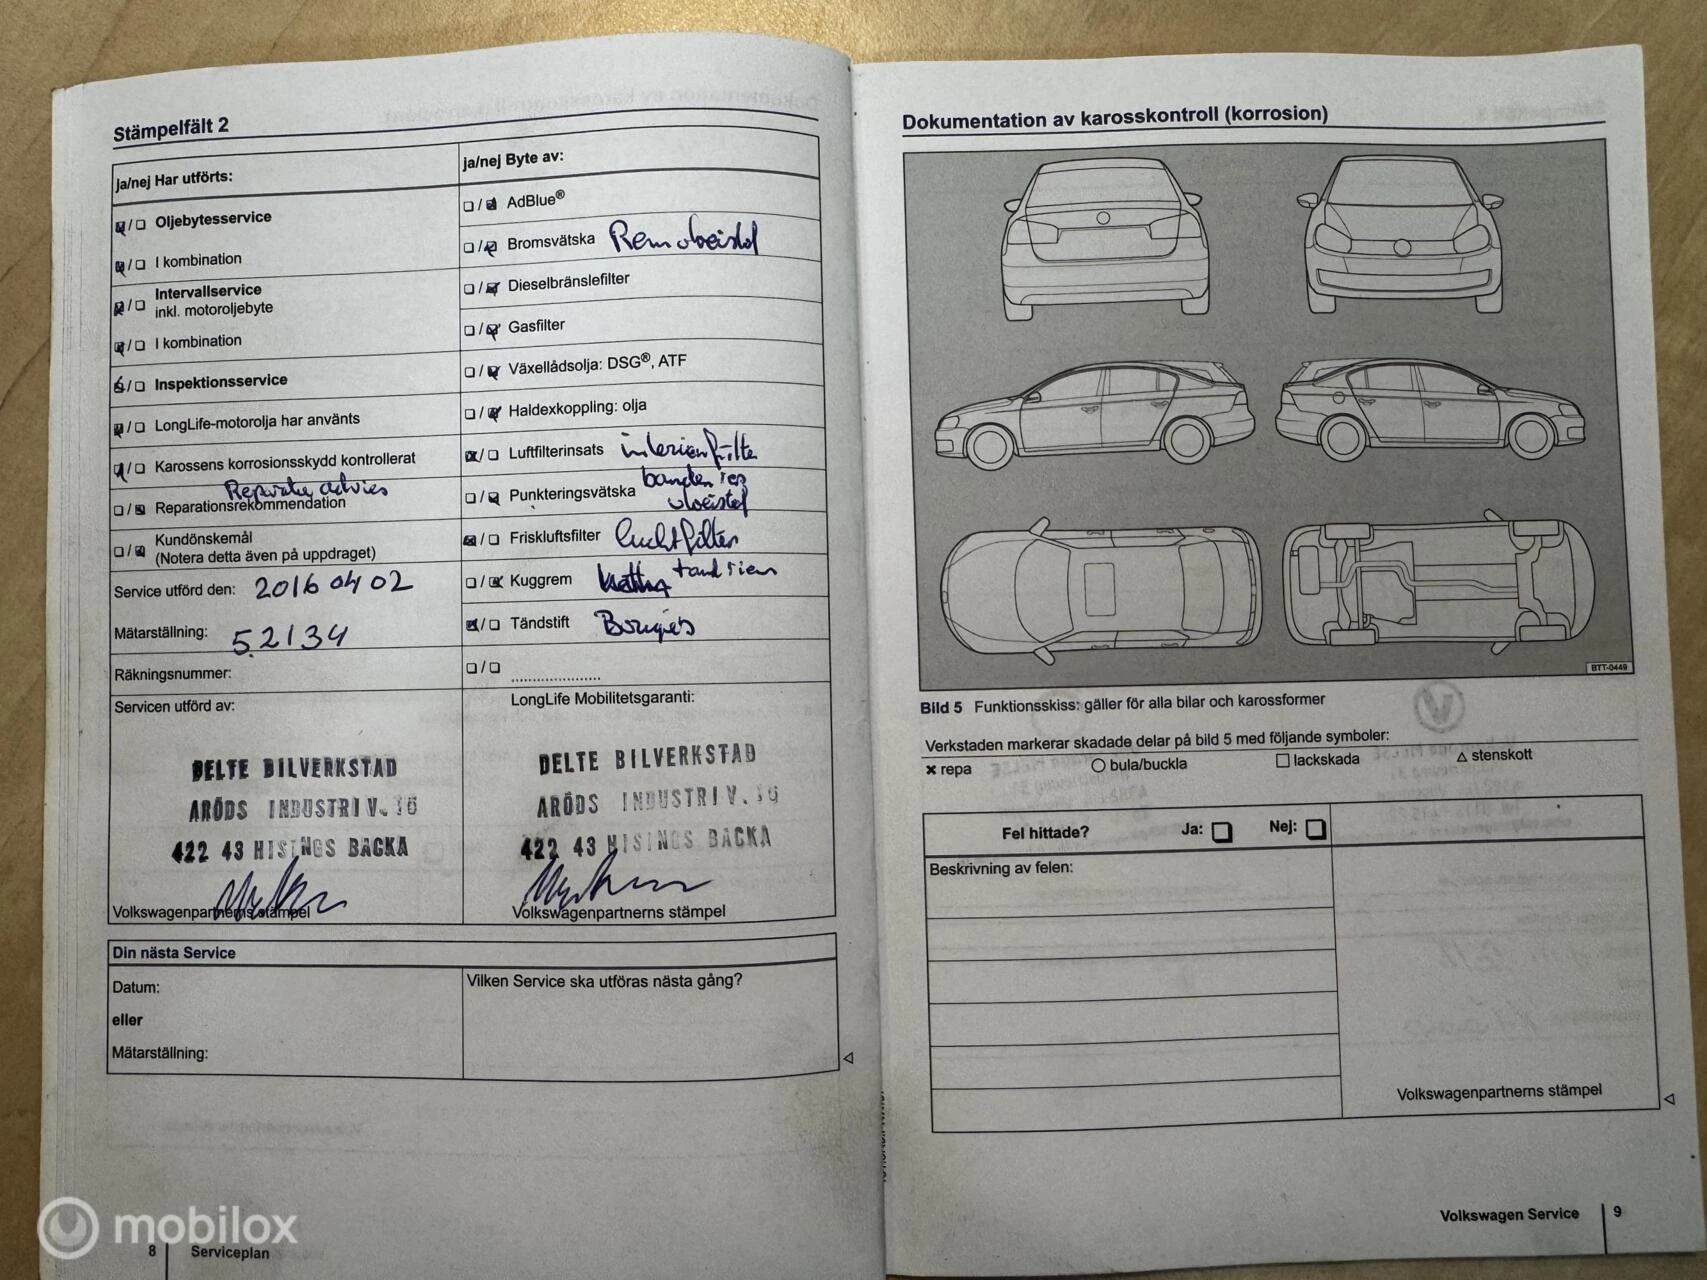 Stämpelfält 2
ja/nej Har utförts:
ja/nej Byte av:
Oljebytesservice
I kombination
Intervallservice
inkl. motoroljebyte
I kombination
Inspektionsservice
LongLife-motorolja har använts
Karossens korrosionsskydd kontrollerat
Reparatie advies
Reparationsrekommendation
Kundönskemål
(Notera detta även på uppdraget)
Service utförd den: 2016 04 02
Mätarställning: 52134
Räkningsnummer:
Servicen utförd av:
DELTE BILVERKSTAD
ARÖDS INDUSTRIV.
422 43 HISINGS BACKA
Volkswagenpartnerns stämpel
AdBlue®
Bromsvätska Remvloeistof
Dieselbränslefilter
Gasfilter
Växellådsolja: DSG®, ATF
Haldexkoppling: olja
Luftfilterinsats interieurfilter
Punkteringsvätska banden rep
vloeistof
Friskluftsfilter luchtfilter
Kuggrem tandriem
Tändstift Bougies
LongLife Mobilitetsgaranti:
DELTE BILVERKSTAD
ARÖDS INDUSTRIV.
422 43 HISINGS BACKA
Volkswagenpartnerns stämpel
Din nästa Service
Datum:
eller
Mätarställning:
Vilken Service ska utföras nästa gång?
8 Serviceplan
Dokumentation av karosskontroll (korrosion)
BTT-0449
Bild 5 Funktionsskiss: gäller för alla bilar och karossformer
Verkstaden markerar skadade delar på bild 5 med följande symboler:
× repa ○ bula/buckla □ lackskada △ stenskott
Fel hittade? Ja: Nej:
Beskrivning av felen:
Volkswagenpartnerns stämpel
Volkswagen Service 9
mobilox